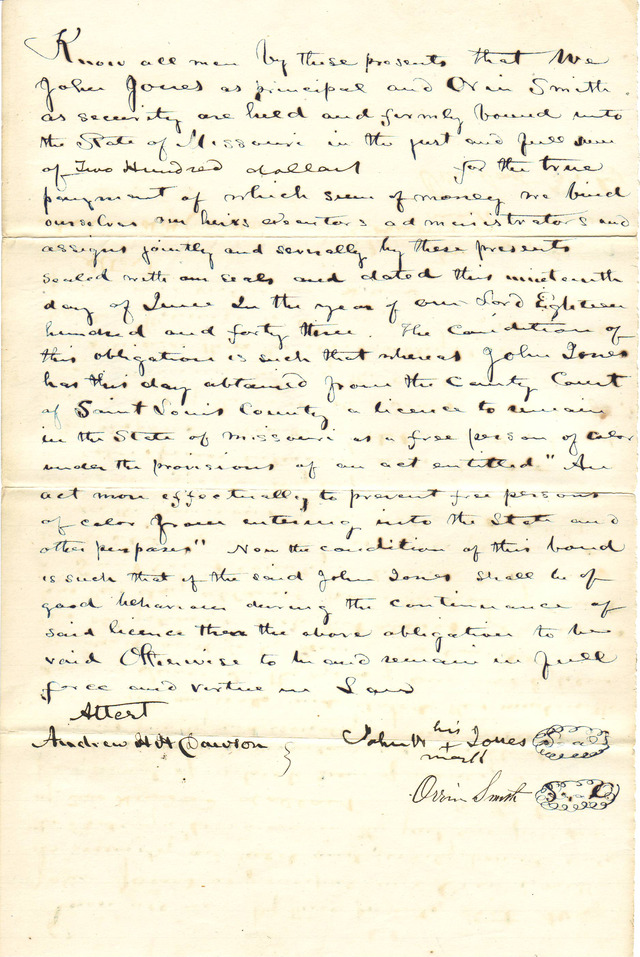 Know all men by these presents that We
John Jones as principal and Orin Smith
as security are held and firmly bound unto
the State of Missouri in the just and full sum
of Two Hundred dollars for the true
payment of which sum of money we bind
ourselves our heirs executors administrators and
assigns jointly and severally by these presents
sealed with our seals and dated this nineteenth
day of June In the year of our Lord Eighteen
hundred and forty three. The Condition of
this obligation is such that whereas John Jones
has this day obtained from the County Court
of Saint Louis County a licence to remain
in the State of Missouri as a free person of color
under the provisions of an act entitled "An
act more effectually to prevent free persons
of color from entering into the State and
other purposes" Now the condition of this bond
is such that if the said John Jones shall be of
good behaviour during the continuance of
said licence then the above obligation to be
void Otherwise to be and remain in full
force and virtue in Law
Attest
Andrew H H Dawson
John H his Jones Seal
+
mark
Orrin Smith Seal